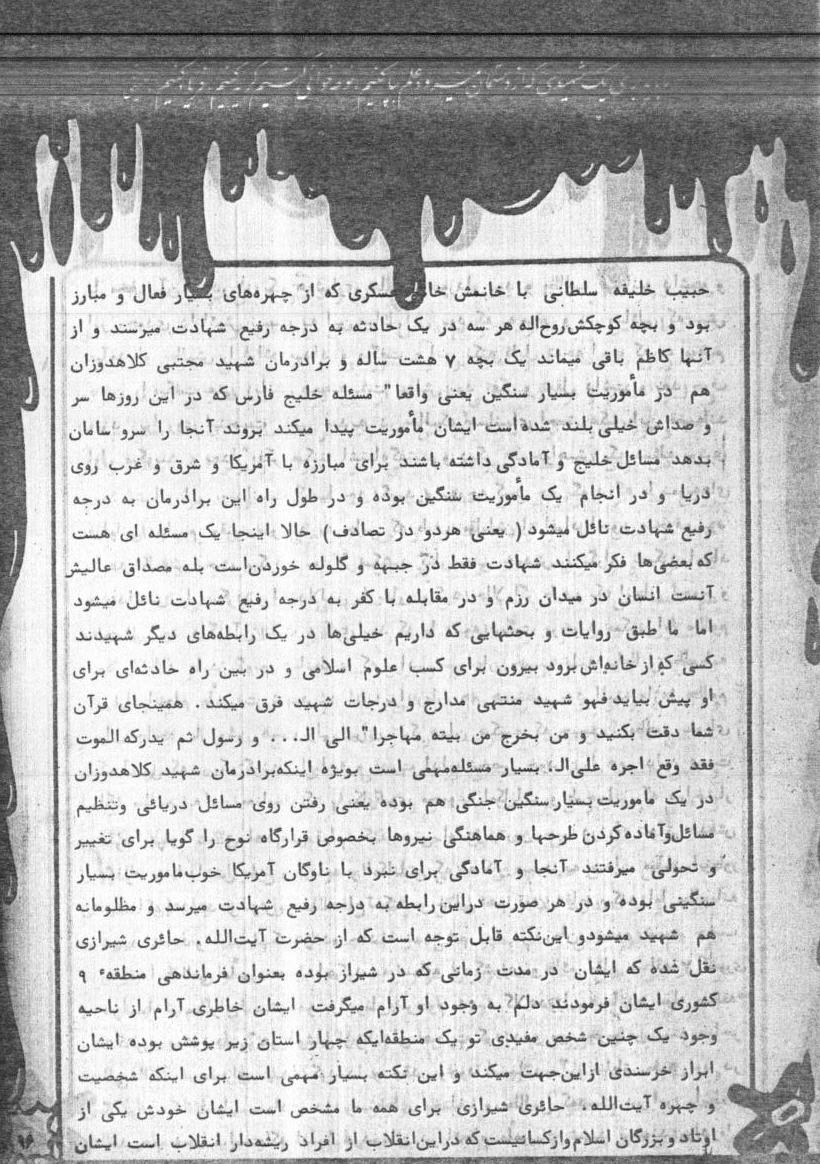 حبیب خلیفه سلطانی با خانمش خانم عسکری که از چهره‌های بسیار فعال و مبارز
بود و بچه کوچکش روح‌اله هر سه در یک حادثه به درجه رفیع شهادت میرسند و از
آنها کاظم باقی میماند یک بچه ۷ هشت ساله و برادرمان شهید مجتبی کلاهدوزان
هم در مأموریت بسیار سنگین یعنی واقعا" مسئله خلیج فارس که در این روزها سر
و صداش خیلی بلند شده است ایشان مأموریت پیدا میکند بروند آنجا را سرو سامان
بدهد مسائل خلیج و آمادگی داشته باشند برای مبارزه با آمریکا و شرق و غرب روی
دریا و در انجام یک مأموریت سنگین بوده و در طول راه این برادرمان به درجه
رفیع شهادت نائل میشود ( یعنی هردو در تصادف ) حالا اینجا یک مسئله ای هست
که بعضی‌ها فکر میکنند شهادت فقط در جبهه و گلوله خوردن است بله مصداق عالیش
آنست انسان در میدان رزم و در مقابله با کفر به درجه رفیع شهادت نائل میشود
اما ما طبق روایات و بحثهایی که داریم خیلی‌ها در یک رابطه‌های دیگر شهیدند
کسی که از خانه‌اش برود بیرون برای کسب علوم اسلامی و در بین راه حادثه‌ای برای
او پیش بیاید فهو شهید منتهی مدارج و درجات شهید فرق میکند . همینجای قرآن
شما دقت بکنید و من بخرج من بیته مهاجرا" الی الـ... و رسول ثم یدرکه الموت
فقد وقع اجره علی‌الـ؛ بسیار مسئله‌مهمی است بویژه اینکه‌برادرمان شهید کلاهدوزان
در یک ماموریت بسیار سنگین جنگی هم بوده یعنی رفتن روی مسائل دریائی وتنظیم
مسائل‌وآماده کردن طرحها و هماهنگی نیروها بخصوص قرارگاه نوح را گویا برای تغییر
و تحولی میرفتند آنجا و آمادگی برای نبرد با ناوگان آمریکا خوب‌ماموریت بسیار
سنگینی بوده و در هر صورت دراین رابطه به درجه رفیع شهادت میرسد و مظلومانه
هم شهید میشودو این‌نکته قابل توجه است که از حضرت آیت‌الله . حائری شیرازی
نقل شده که ایشان در مدت زمانی که در شیراز بوده بعنوان فرماندهی منطقهٔ ۹
کشوری ایشان فرمودند دلم به وجود او آرام میگرفت ایشان خاطری آرام از ناحیه
وجود یک چنین شخص مفیدی تو یک منطقه‌ایکه چهار استان زیر پوشش بوده ایشان
ابراز خرسندی ازاین‌جهت میکند و این نکته بسیار مهمی است برای اینکه شخصیت
و چهره آیت‌الله . حائری شیرازی برای همه ما مشخص است ایشان خودش یکی از
اوتاد و بزرگان اسلام‌وازکسانیست که دراین‌انقلاب از افراد ریشه‌دار انقلاب است ایشان